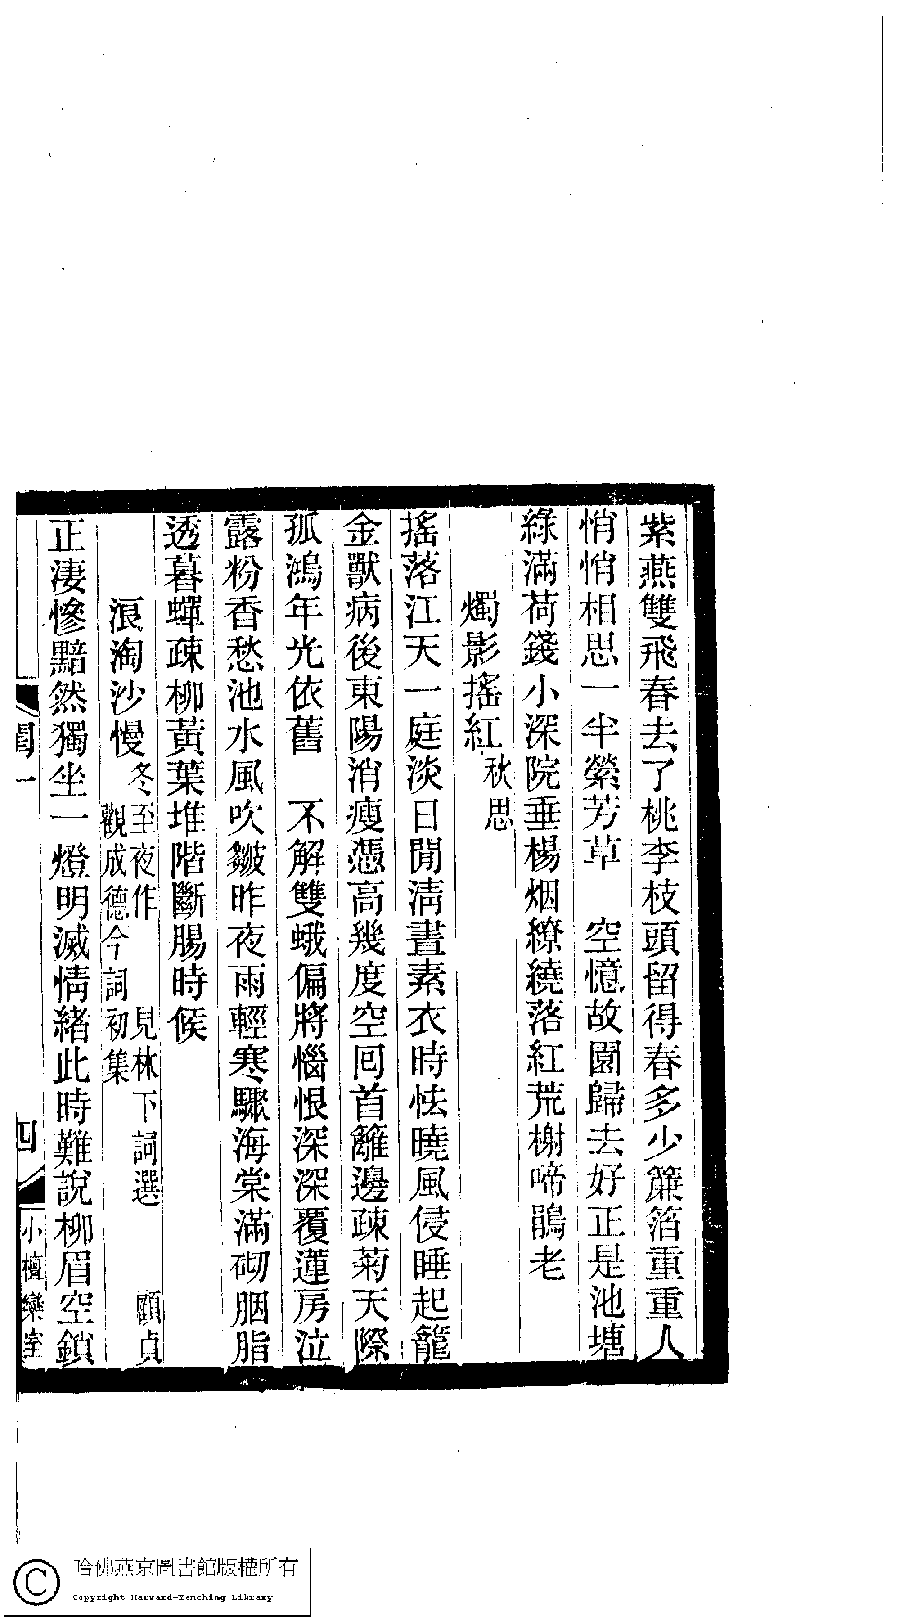 紫燕雙飛春去了桃李枝頭留得春多少簾箔重重人
悄悄相思一半縈芳草　空憶故園歸去好正是池塘
綠滿荷錢小深院垂楊烟繚繞落紅荒榭啼鵑老
燭影搖紅秋思
搖落江天一庭淡日閒清晝素衣時怯曉風侵睡起籠
金獸病後東陽消瘦憑高幾度空囘首籬邊疎菊天際
孤鴻年光依舊　不解雙蛾偏將惱恨深深覆蓮房泣
露粉香愁池水風吹皺昨夜雨輕寒驟海棠滿砌胭脂
透暮蟬疎柳黃葉堆階斷腸時候
浪淘沙慢冬至夜作　見林下詞選　顧貞
觀成德今詞初集
正淒慘黯然獨坐一燈明滅情緒此時難說柳眉空鎖
閨一
四
小檀欒室
哈佛燕京圖書館版權所有
Copyright Harvard-Yenching Library